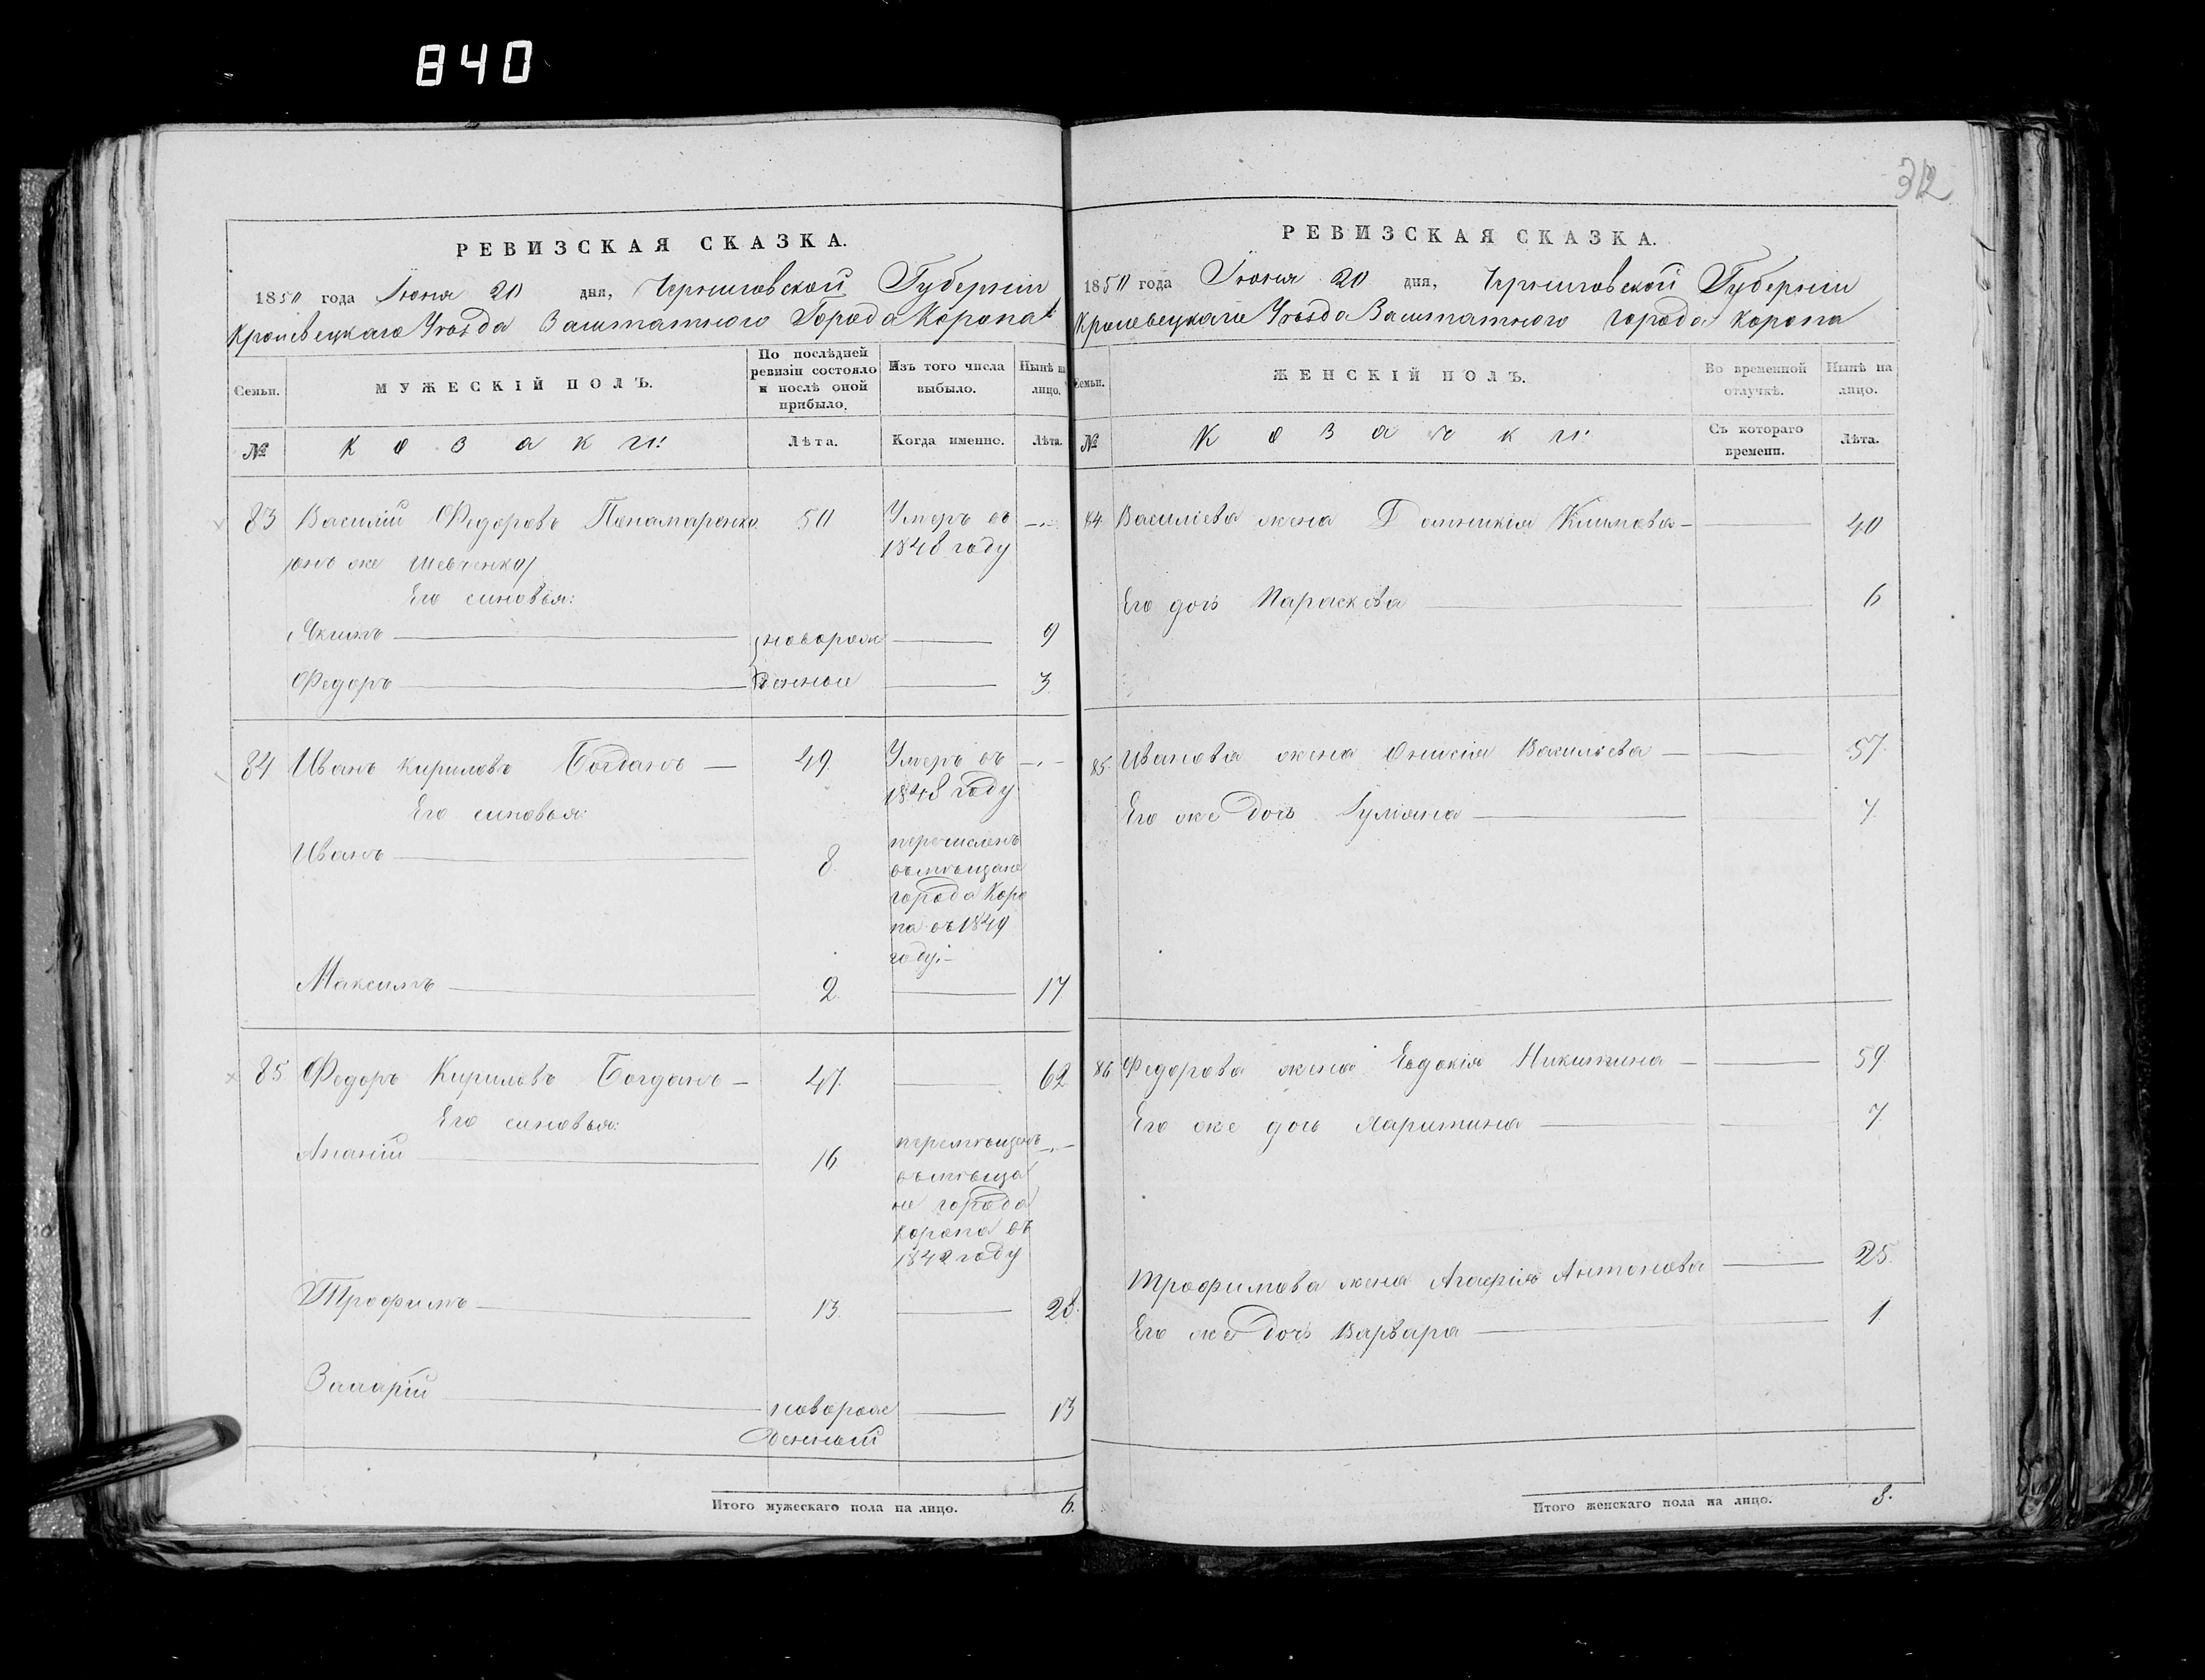 840
32
РЕВИЗСКАЯ СКАЗКА.
1850 года Іюня 20 дня, Черниговской Губерніи
Кролевецкаго Уѣзда Заштатного Города Коропа
Семьи.
МУЖЕСКІЙ ПОЛЪ.
По послѣдней ревизіи состояло и послѣ оной прибыло.
Изъ того числа выбыло.
Нынѣ на лицо.
№
Козаки:
Лѣта.
Когда именно.
Лѣта.
83 Василій Федоровъ Понамаренко 50 Умеръ въ —.—
/онъ же Шевченко/ 1848 году
Его синовья:
Якимъ — новорож — 9
Федоръ — денные — 3
84 Иванъ Кириловъ Богданъ — 49. Умеръ въ —.—
1848 году
Его синовья:
Иванъ — 8. перечисленъ
въ мѣщане
города Коро
па въ 1849
году.—
Максимъ — 2. — 17
85 Федоръ Кириловъ Богданъ — 47. — 62
Его синовья:
Ананій — 16 перемѣщенъ —.—
въ мѣща
не города
Коропа въ
1842 году
Трофимъ — 13. — 28.
Захарій — новорож — 13
денный
Итого мужескаго пола на лицо. 6.
РЕВИЗСКАЯ СКАЗКА.
1850 года Іюня 20 дня, Черниговской Губерніи
Кролевецкаго Уѣзда Заштатного города Коропа
Семьи.
ЖЕНСКІЙ ПОЛЪ.
Во временной отлучкѣ.
Нынѣ на лицо.
№
Козачки:
Съ котораго времени.
Лѣта.
84. Васильева жена Домникія Климова — 40
Его дочь Параскева — 6
85. Иванова жена Онисія Васильева — 57.
Его же дочь Іулияна — 7
86 Федорова жена Евдокія Никитина — 59
Его же дочь Харитина — 7.
Трофимова жена Агафія Антонова — 25.
Его же дочь Варвара — 1
Итого женскаго пола на лицо. 8.